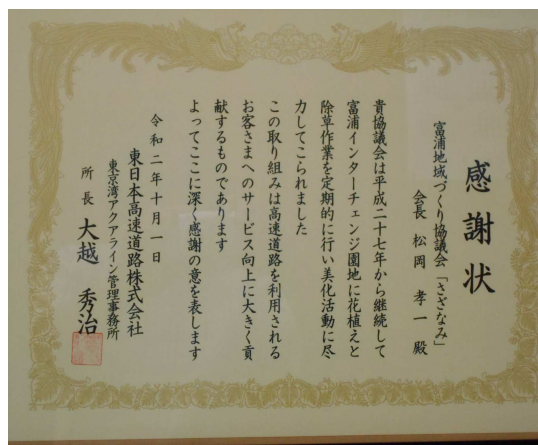 感謝状
富浦地域づくり協議会「さざなみ」
会長 松岡 孝一 殿
貴協議会は平成二十七年から継続して
富浦インターチェンジ園地に花植えと
除草作業を定期的に行い美化活動に尽
力してこられました
この取り組みは高速道路を利用される
お客さまへのサービス向上に大きく貢
献するものであります
よってここに深く感謝の意を表します
令和二年十月一日
東日本高速道路株式会社
東京湾アクアライン管理事務所
所長 大越 秀治